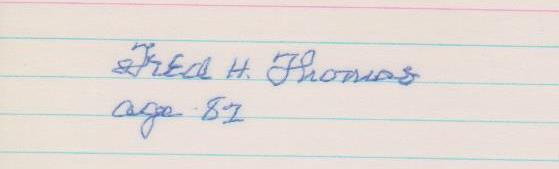 Fred H. Thomas
age 87